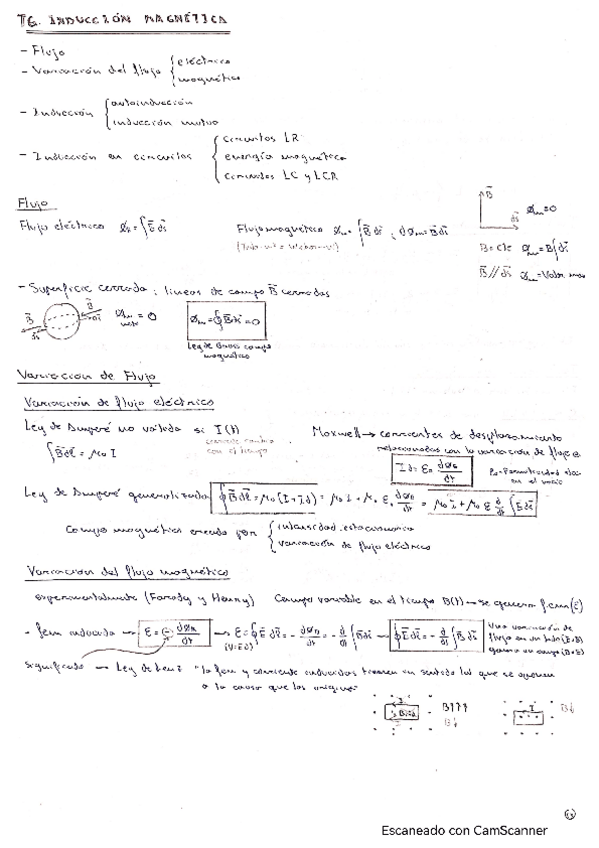 T6. INDUCCIÓN MAGNÉTICA
- Flujo
- Variación del flujo { eléctrico
magnético
- Inducción { autoinducción
inducción mutua
- Inducción en circuitos { circuitos LR
energía magnética
circuitos LC y LCR
Flujo
Flujo eléctrico Φe = ∫ E ds Flujo magnético Φm = ∫ B ds ; dΦm = B ds
B Φm = 0
B = cte Φm = B ∫ ds
B // ds Φm = Valor max
- Superficie cerrada : líneas de campo B cerradas
Φm neto = 0 Φm = ∮ B ds = 0
Ley de Gauss campo magnético
Variación de Flujo
Variación de flujo eléctrico
Ley de Ampere no válida si I(t) Maxwell → corrientes de desplazamiento
corriente cambia con el tiempo relacionadas con la variación de flujo e
∫ B dl = μ0 I Id = ε0 dΦe/dt
en el vacío
Ley de Ampere generalizada ∮ B dl = μ0 (I + Id) = μ0 I + μ0 ε0 dΦe/dt = μ0 I + μ0 ε d/dt ∫ E ds
Campo magnético creado por { intensidad estacionaria
variación de flujo eléctrico
Variación del flujo magnético
experimentalmente (Faraday y Henry) Campo variable en el tiempo B(t) → se genera f.em (ε)
- fem inducida → ε = - dΦm/dt → ε = ∮ E dl = - dΦm/dt = - d/dt ∫ B ds → ∮ E dl = - d/dt ∫ B ds
Una variación de
significado → Ley de Lenz "la fem y corriente inducidas tienen un sentido tal que se oponen
a la causa que las origina"
I B↑↑↑ I B↓
B↓
Escaneado con CamScanner